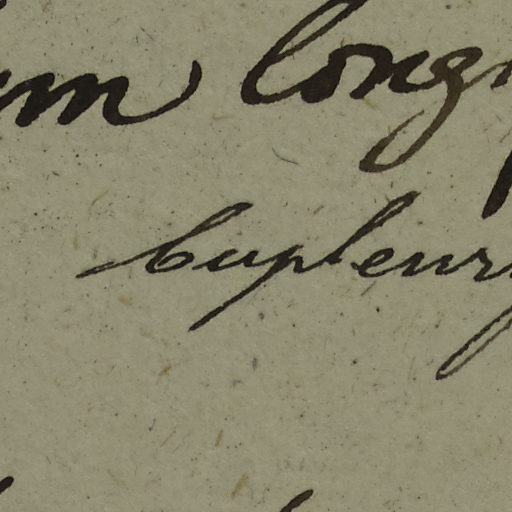 um long
bupleur